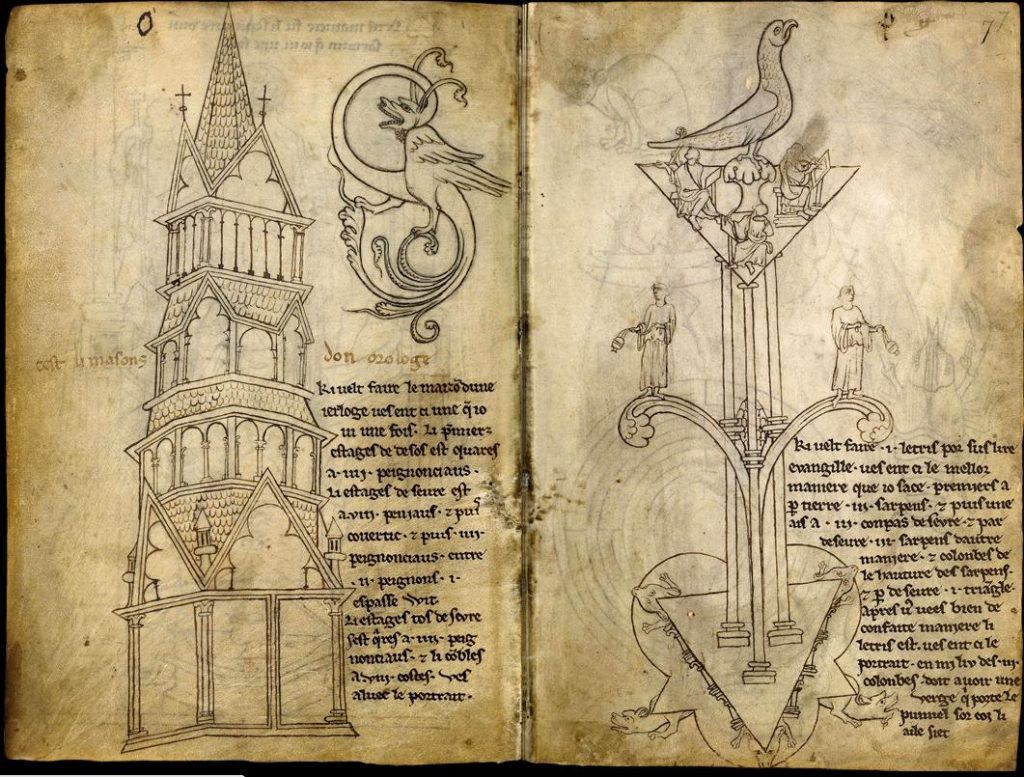 cest li masons
don orologe
Ki velt faire le maizō dune
ierloge ves ent ci une q̄ io
ui une fois. Li p̄miers
estages de desos est quares
a .iiii. peignonciaus.
Li estages deseure est
a .viii. peniaus. ⁊ puis
covertic. ⁊ puis .iiii.
peignonciaus. entre
.ii. peignons. i.
espasse wit
Li estages tos deseure
sest q̄res a .iiii. peig
nonciaus. ⁊ li cōbles
a .viii. costes. ves
aluec le portrait.
77
Ki velt faire .i. letris por sus lire
evangille. ves ent ci le mellor
maniere que io sace. premiers a
p̄ tierre .iii. sarpens. ⁊ puis une
ais a .iii. conpas deseure. ⁊ par
deseure .iii. sarpens dautre
maniere. ⁊ colonbes de
le hauture des sarpens.
⁊ p̄ deseure .i. triāgle.
apres vees bien de
confaite maniere li
letris est. ves ent ci le
portrait. en mi liv des .iii.
colonbes doit avoir une
verge q̄ porte le
pumiel sor coi li
aile siet